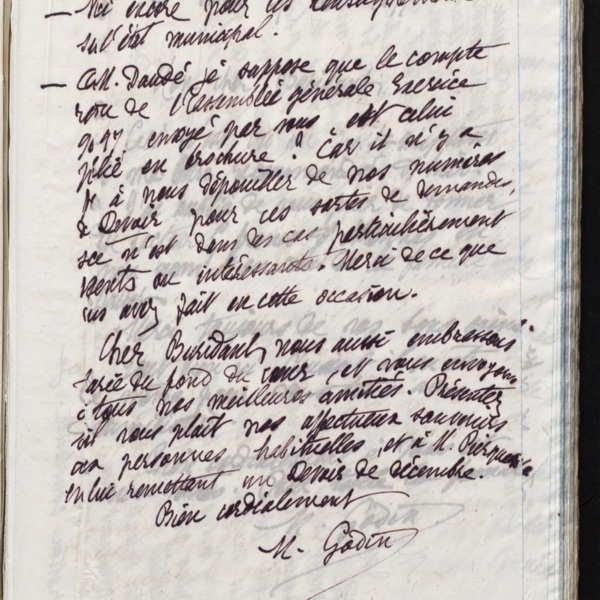 — Moi encore pour les renseignements
sur l'état municipal.
— à M. Daudé je suppose que le compte
rendu de l'Assemblée générale Exercice
96 97 envoyé par nous est celui
publié en brochure ? Car il n'y a
à nous dépouiller de nos numéros
du Devoir pour ces sortes de demandes,
ce n'est dans des cas particulièrement
ou intéressants. Merci de ce que
vous avez fait en cette occasion.
Cher Buridant, nous aussi embrassons
du fond du cœur et vous envoyons
à tous nos meilleures amitiés. Présentez
s'il vous plaît nos affectueux souvenirs
aux personnes habituelles, et à M.
en lui remettant un Devoir de décembre.
Bien cordialement
M. Godin